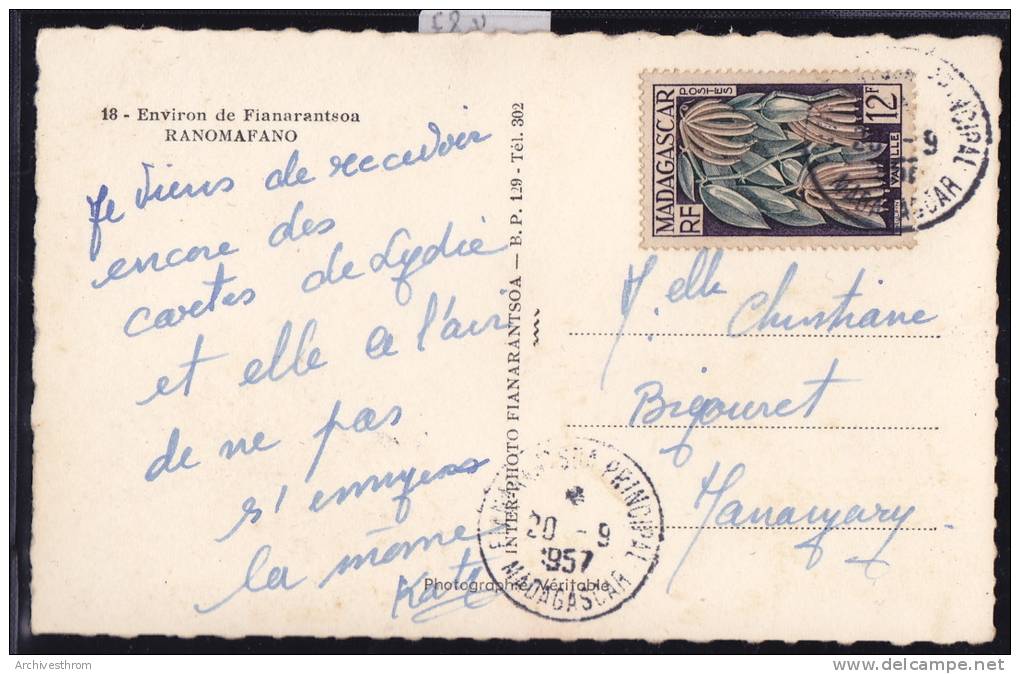 18 - Environ de Fianarantsoa
RANOMAFANO
Je viens de recevoir
encore des
cartes de Lydie
et elle a l'air
de ne pas
s'ennuyer
la môme
Katy
INTER-PHOTO FIANARANTSOA — B. P. 129 - Tél. 302
Photographie Véritable
MADAGASCAR
RF
POSTES
12F
VANILLE
PRINCIPAL
20 - 9
MADAGASCAR
M.elle Christiane
Bigouret
Mananjary.
FIANARANTSOA PRINCIPAL
20 - 9
1957
MADAGASCAR
Archivesthrom
www.delcampe.net